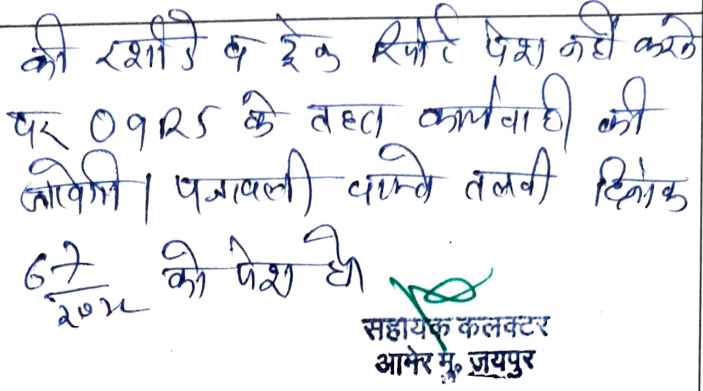 की रशीद व ट्रेक रिपोर्ट पेश नहीं करने
पर O9R5 के तहत कार्यवाही की
जावेगी। पत्रावली वास्ते तलवी दिनांक
6-7 को पेश हो
सहायक कलक्टर
आमेर मु० जयपुर